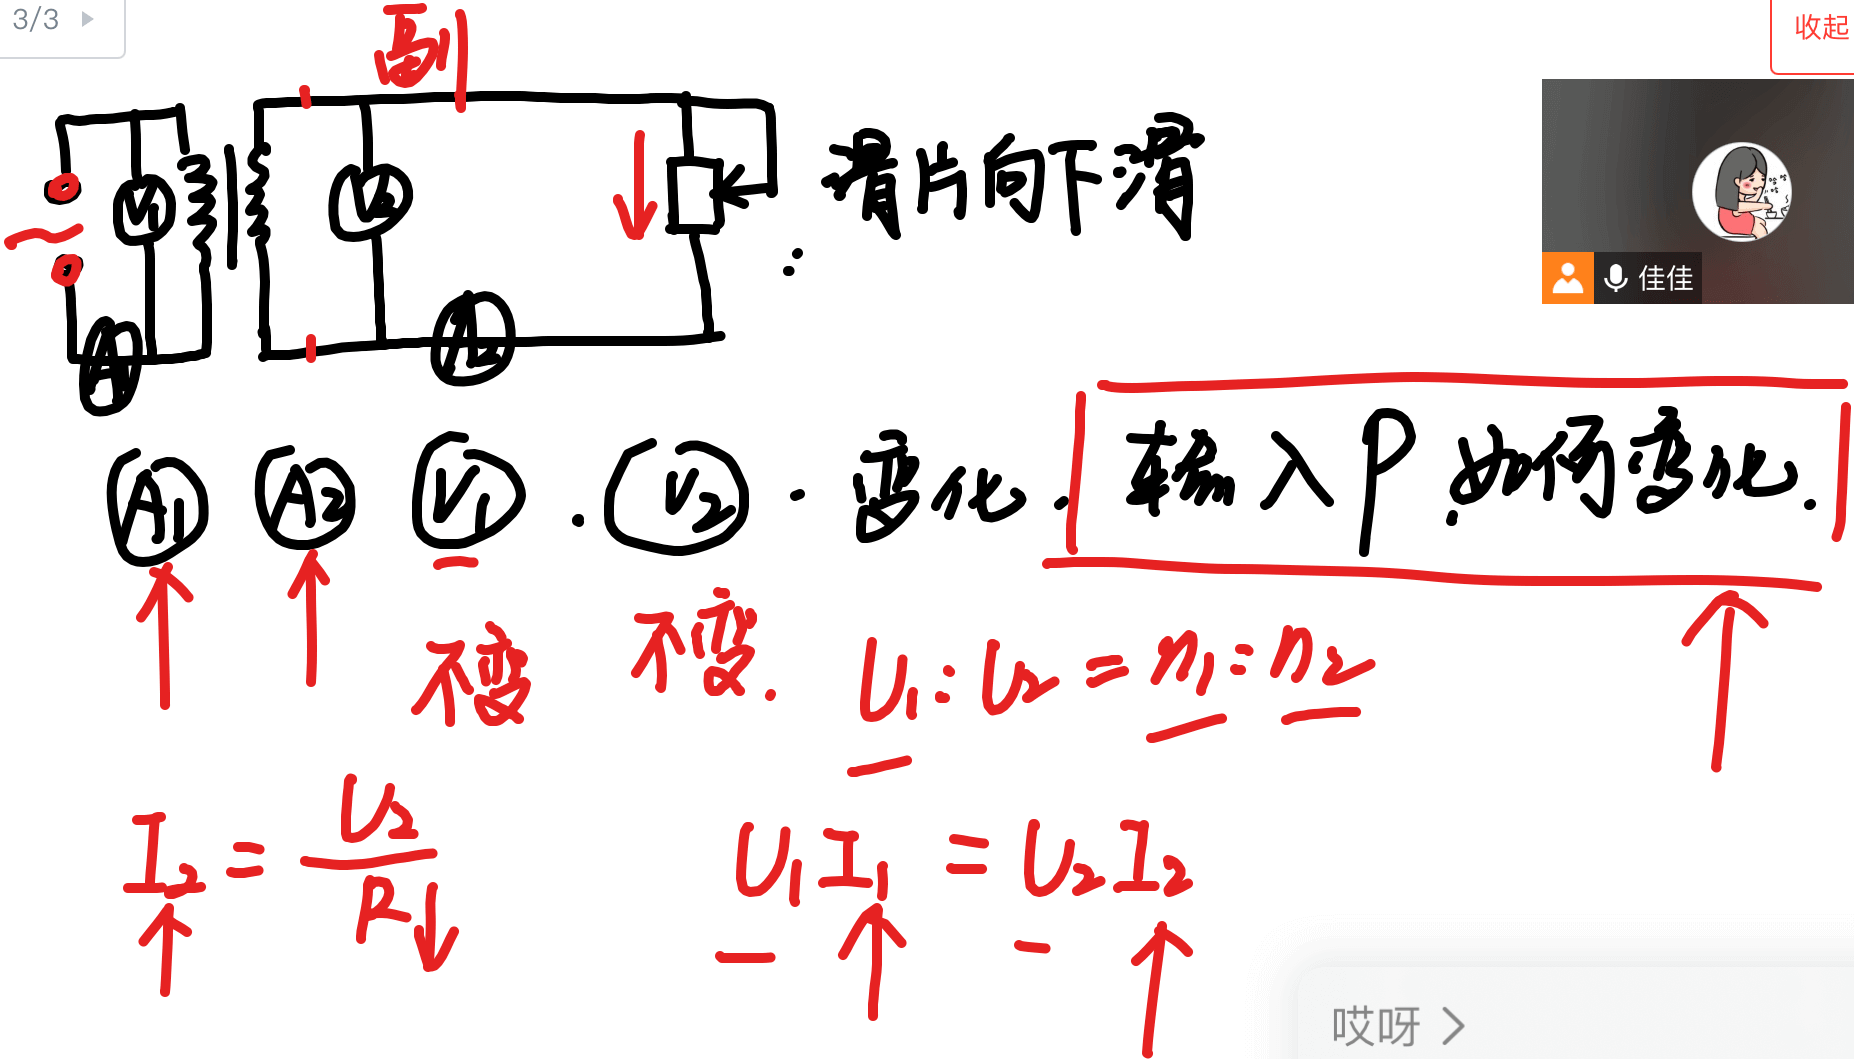 3/3
收起
副
V1
V2
滑片向下滑
佳佳
A
A2
A1 A2 V1 . V2 . 变化. 输入P.如何变化.
不变 不变. U1:U2=n1:n2
I2 = U2/R↓
U1I1 = U2I2
哎呀 >